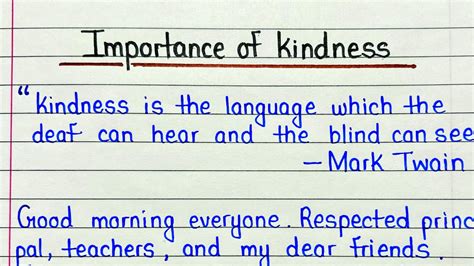 Importance of kindness
"kindness is the language which the
deaf can hear and the blind can see
— Mark Twain
Good morning everyone. Respected princ
pal, teachers, and my dear friends.